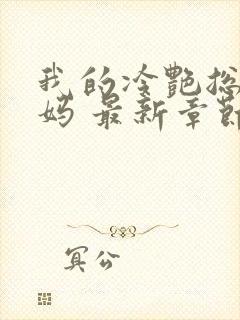 我的冷艷总
妈 最新章節
冥公